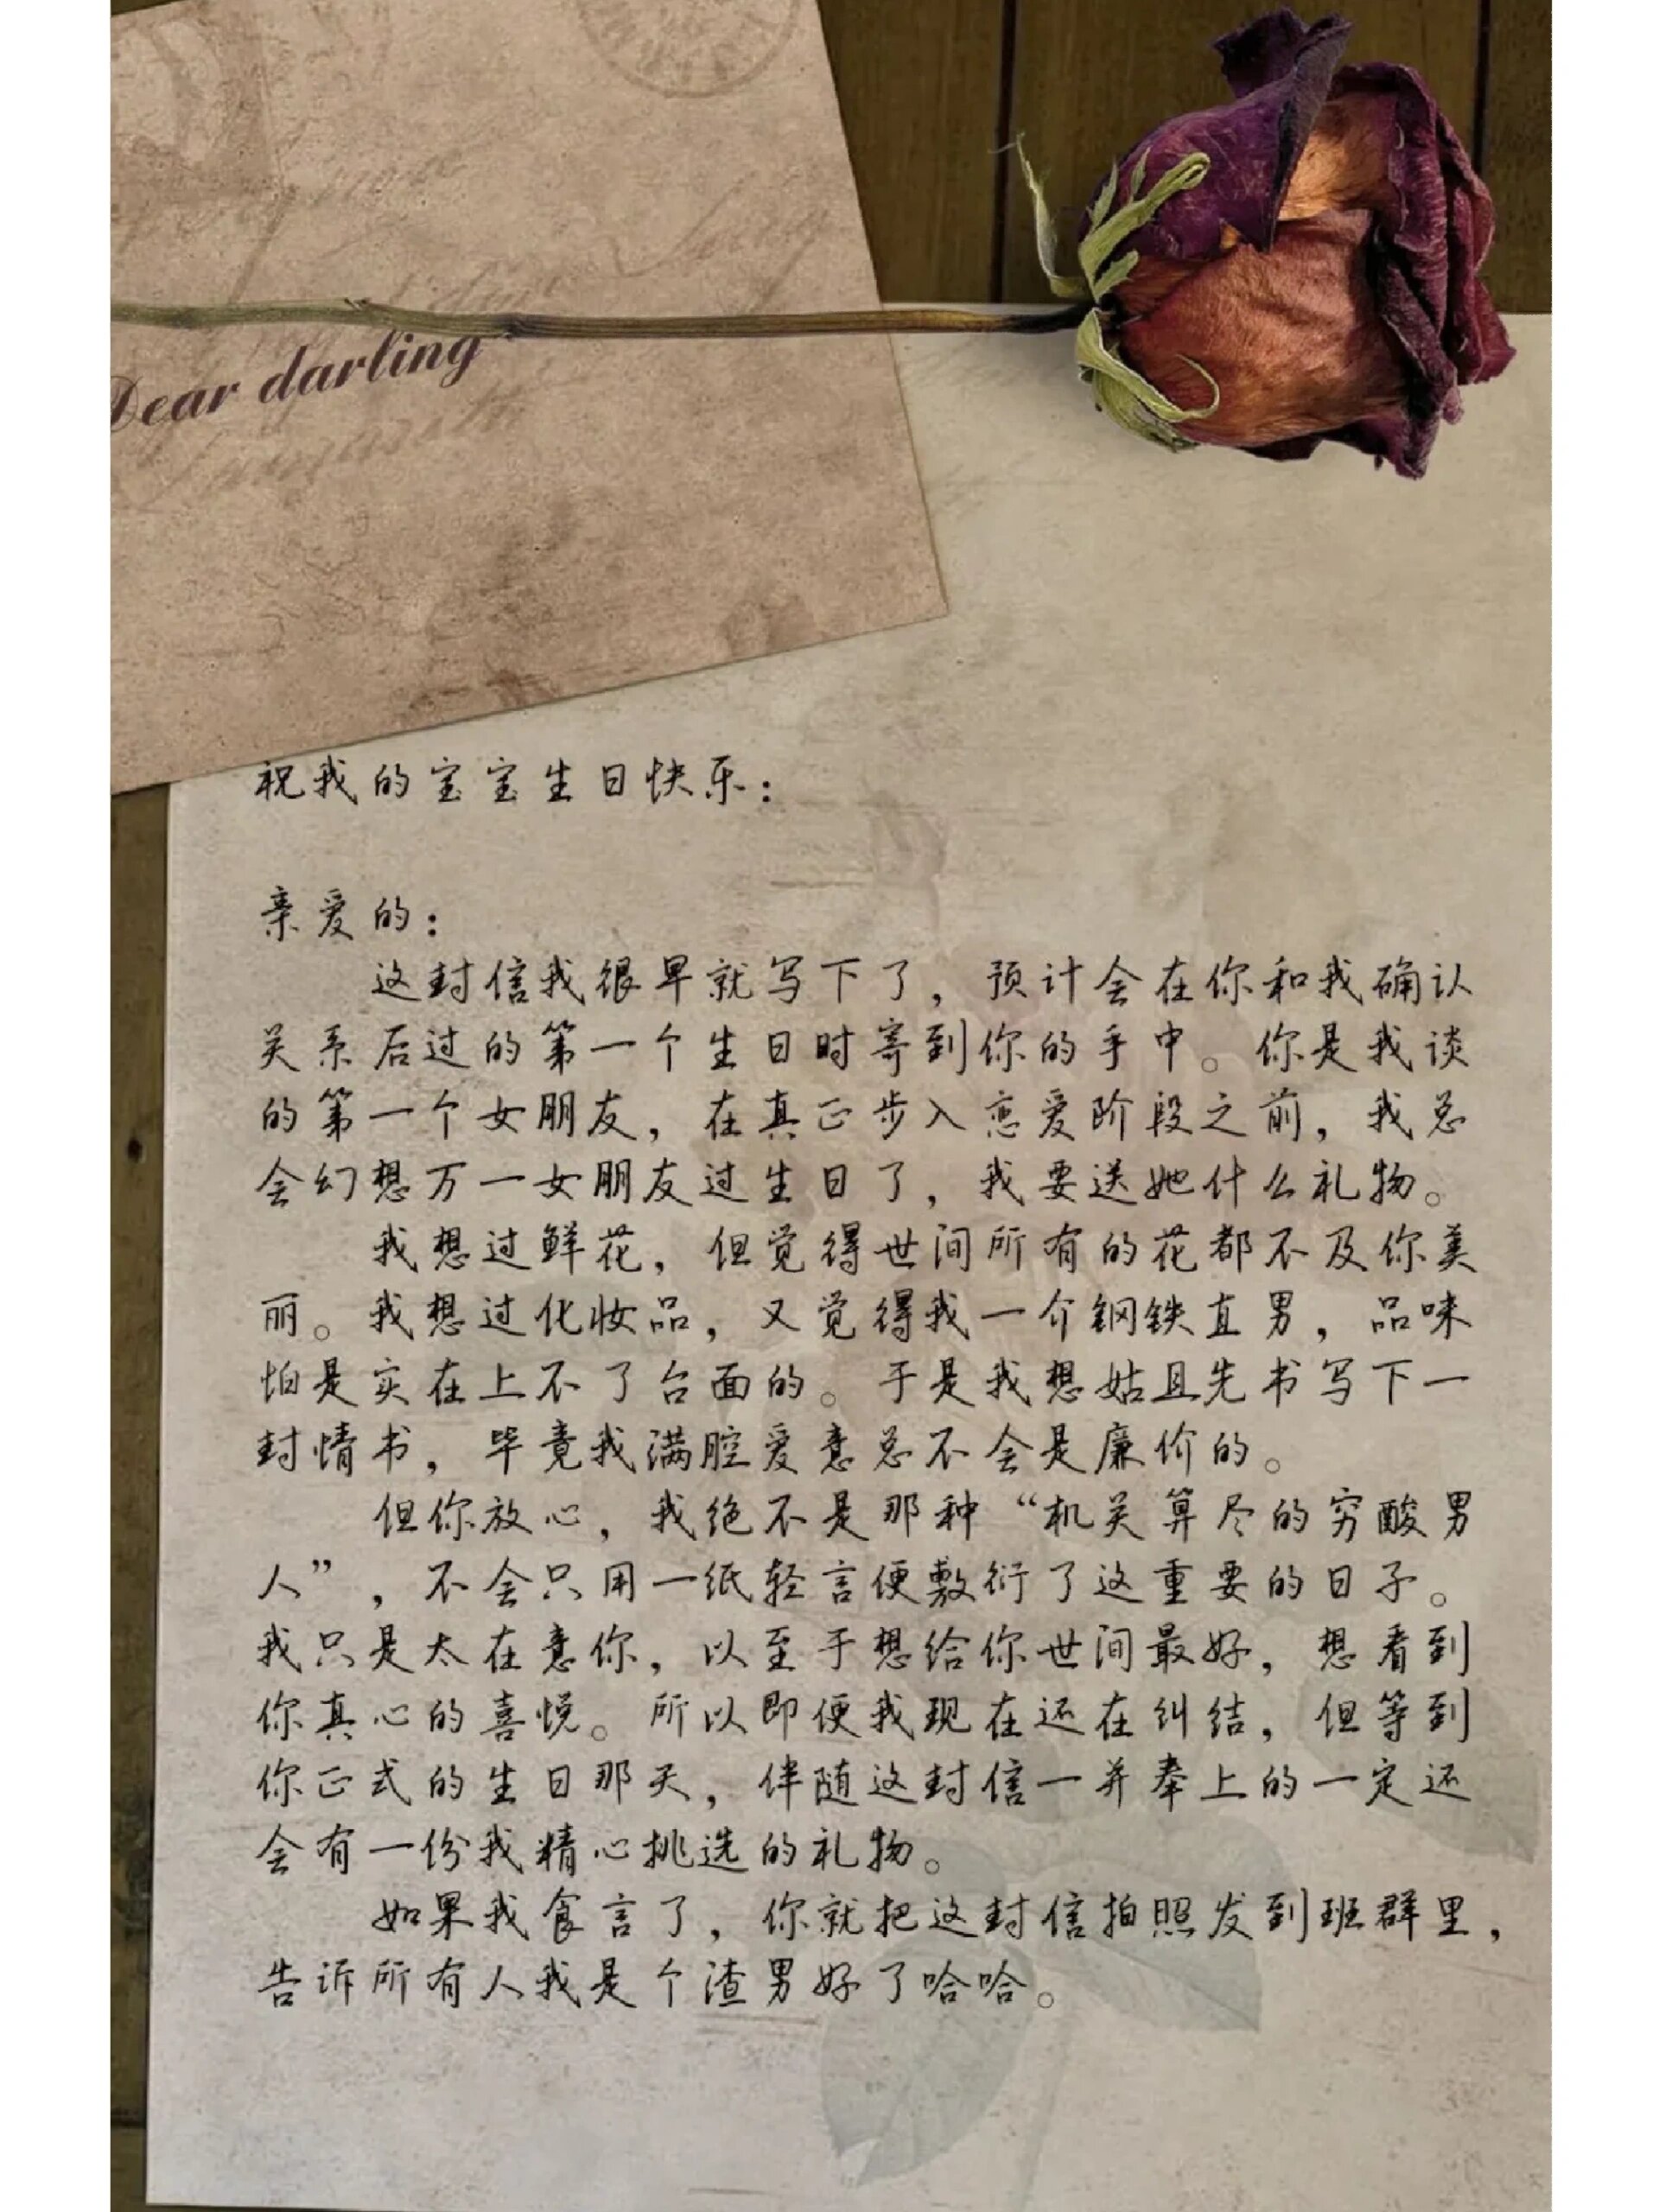 Dear darling
祝我的宝宝生日快乐：
亲爱的：
这封信我很早就写下了，预计会在你和我确认
关系后过的第一个生日时寄到你的手中。你是我谈
的第一个女朋友，在真正步入恋爱阶段之前，我总
会幻想万一女朋友过生日了，我要送她什么礼物。
我想过鲜花，但觉得世间所有的花都不及你美
丽。我想过化妆品，又觉得我一介钢铁直男，品味
怕是实在上不了台面的。于是我想姑且先书写下一
封情书，毕竟我满腔爱意总不会是廉价的。
但你放心，我绝不是那种“机关算尽的穷酸男
人”，不会只用一纸轻言便敷衍了这重要的日子。
我只是太在意你，以至于想给你世间最好，想看到
你真心的喜悦。所以即便我现在还在纠结，但等到
你正式的生日那天，伴随这封信一并奉上的一定还
会有一份我精心挑选的礼物。
如果我食言了，你就把这封信拍照发到班群里，
告诉所有人我是个渣男好了哈哈。